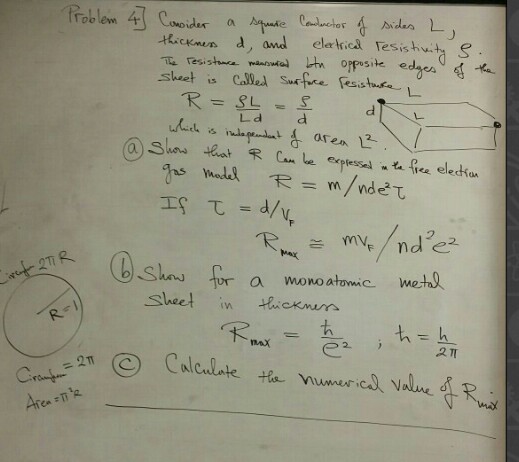 Problem 4] Consider a square Conductor of sides L,
thickness d, and electrical resistivity ρ.
The resistance measured btn opposite edges of the
sheet is Called Surface resistance
R = ρL/Ld = ρ/d
L
d
L
which is independent of area L².
(a) Show that R Can be expressed in the free electron
gas model R = m/nde²τ
If τ = d/V_F
R_max ≅ mV_F/nd²e²
(b) Show for a monoatomic metal
Sheet in thickness
R_max = ħ/e² ; ħ = h/2π
(c) Calculate the numerical value of R_max
2πR
R=1
= 2π
Area = π²R